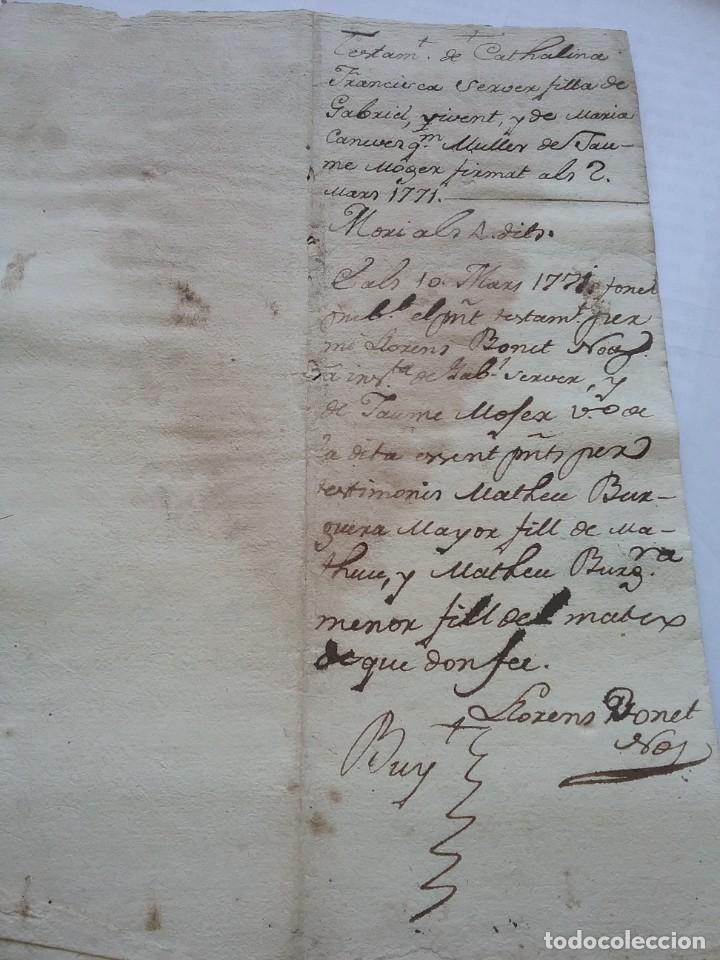 Testamt. de Cathalina
Francisca Server filla de
Gabriel, vivent, y de Maria
qm. Muller de Jau-
me Moger firmat als 2.
Mars 1771.
Mori als 4. dits.
Als 10. Mars 1771. fonch
publt. el pnt testamt. per
me Llorens Bonet Not.
a insta. de Gabl. Server, y
de Jaume Moger vo. de
la dita essent pnts per
testimonis Matheu Bur-
guera Mayor fill de Ma-
theu, y Matheu Burgra.
menor fill del matex
de que don fee.
Llorens Bonet
Not
Buy
todocoleccion